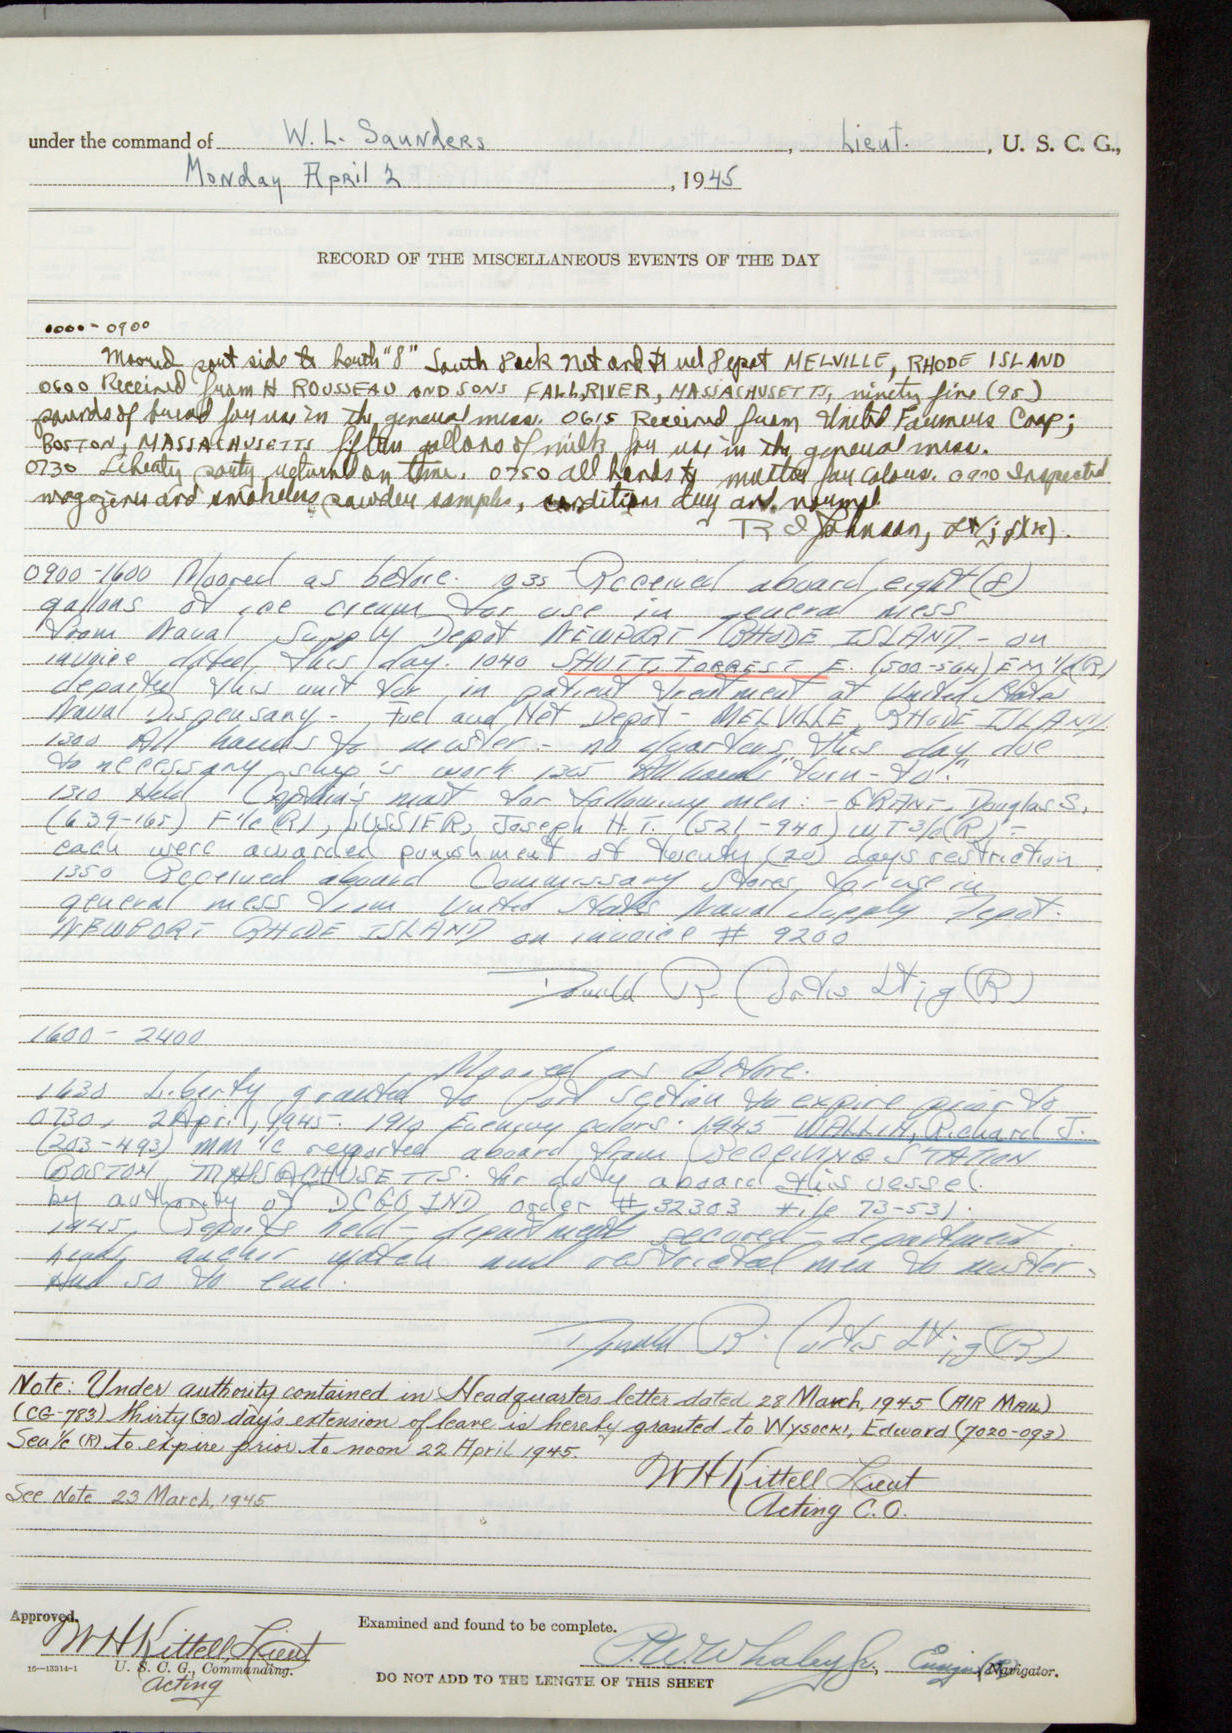 under the command of W. L. Saunders, Lieut., U. S. C. G.,
Monday April 2, 1945
RECORD OF THE MISCELLANEOUS EVENTS OF THE DAY
0000-0900
Moored port side to berth "8" South Dock Net and Fuel Depot MELVILLE, RHODE ISLAND
0600 Received from H ROUSSEAU AND SONS FALL RIVER, MASSACHUSETTS, ninety five (95)
pounds of bread for use in the general mess. 0615 Received from United Farmers Coop;
BOSTON, MASSACHUSETTS fifteen gallons of milk for use in the general mess.
0730 Liberty party returned on time. 0750 All hands to muster for colors. 0900 Inspected
magazines and smokeless powder samples, conditions dry and normal
R I Johnson, Lt/jg (R).
0900-1600 Moored as before. 935 Received aboard eight (8)
gallons of ice cream for use in general mess
from Naval Supply Depot NEWPORT RHODE ISLAND - on
invoice dated this day. 1040 SHUTT, FORREST E. (500-564) EM 1/c (R)
departed this unit for in patient treatment at United States
Naval Dispensary - Fuel and Net Depot - MELVILLE, RHODE ISLAND.
1300 All hands to muster - no quarters this day due
to necessary ship's work 1305 All hands "turn-to".
1310 Held Captain's mast for following men: - GRANT, Douglas S.
(639-165) F 1/c (R), LUSSIER, Joseph H.T. (521-940) WT 3/c (R) -
each were awarded punishment of twenty (20) days restriction
1350 Received aboard Commissary Stores for use in
general mess from United States Naval Supply Depot.
NEWPORT RHODE ISLAND on invoice # 9200
Donald R. Curtis Lt jg (R)
1600 - 2400
Moored as before.
1630 Liberty granted to Port Section to expire prior to
0730, 2 April, 1945. 1910 Evening colors. 1945 WALLIN, Richard J.
(203-493) MM 1/c reported aboard from RECEIVING STATION
BOSTON, MASSACHUSETTS. for duty aboard this vessel
by authority of DCGO, 1ND order # 32303 file 73-531.
1945, Reports held - departments secured - department
heads, anchor watch and restricted men to muster.
And so to end.
Donald R. Curtis Lt jg (R)
Note: Under authority contained in Headquarters letter dated 28 March, 1945 (AIR MAIL)
(CG-783) thirty (30) day's extension of leave is hereby granted to WYSOCKI, Edward (7020-093)
Sea 1/c (R) to expire prior to noon 22 April 1945.
W H Kittell Lieut
Acting C.O.
See Note 23 March, 1945
Approved.
W H Kittell, Lieut
U. S. C. G., Commanding.
Acting
16—13314-1
Examined and found to be complete.
P.W. Whaley Jr., Ensign (R) Navigator.
DO NOT ADD TO THE LENGTH OF THIS SHEET